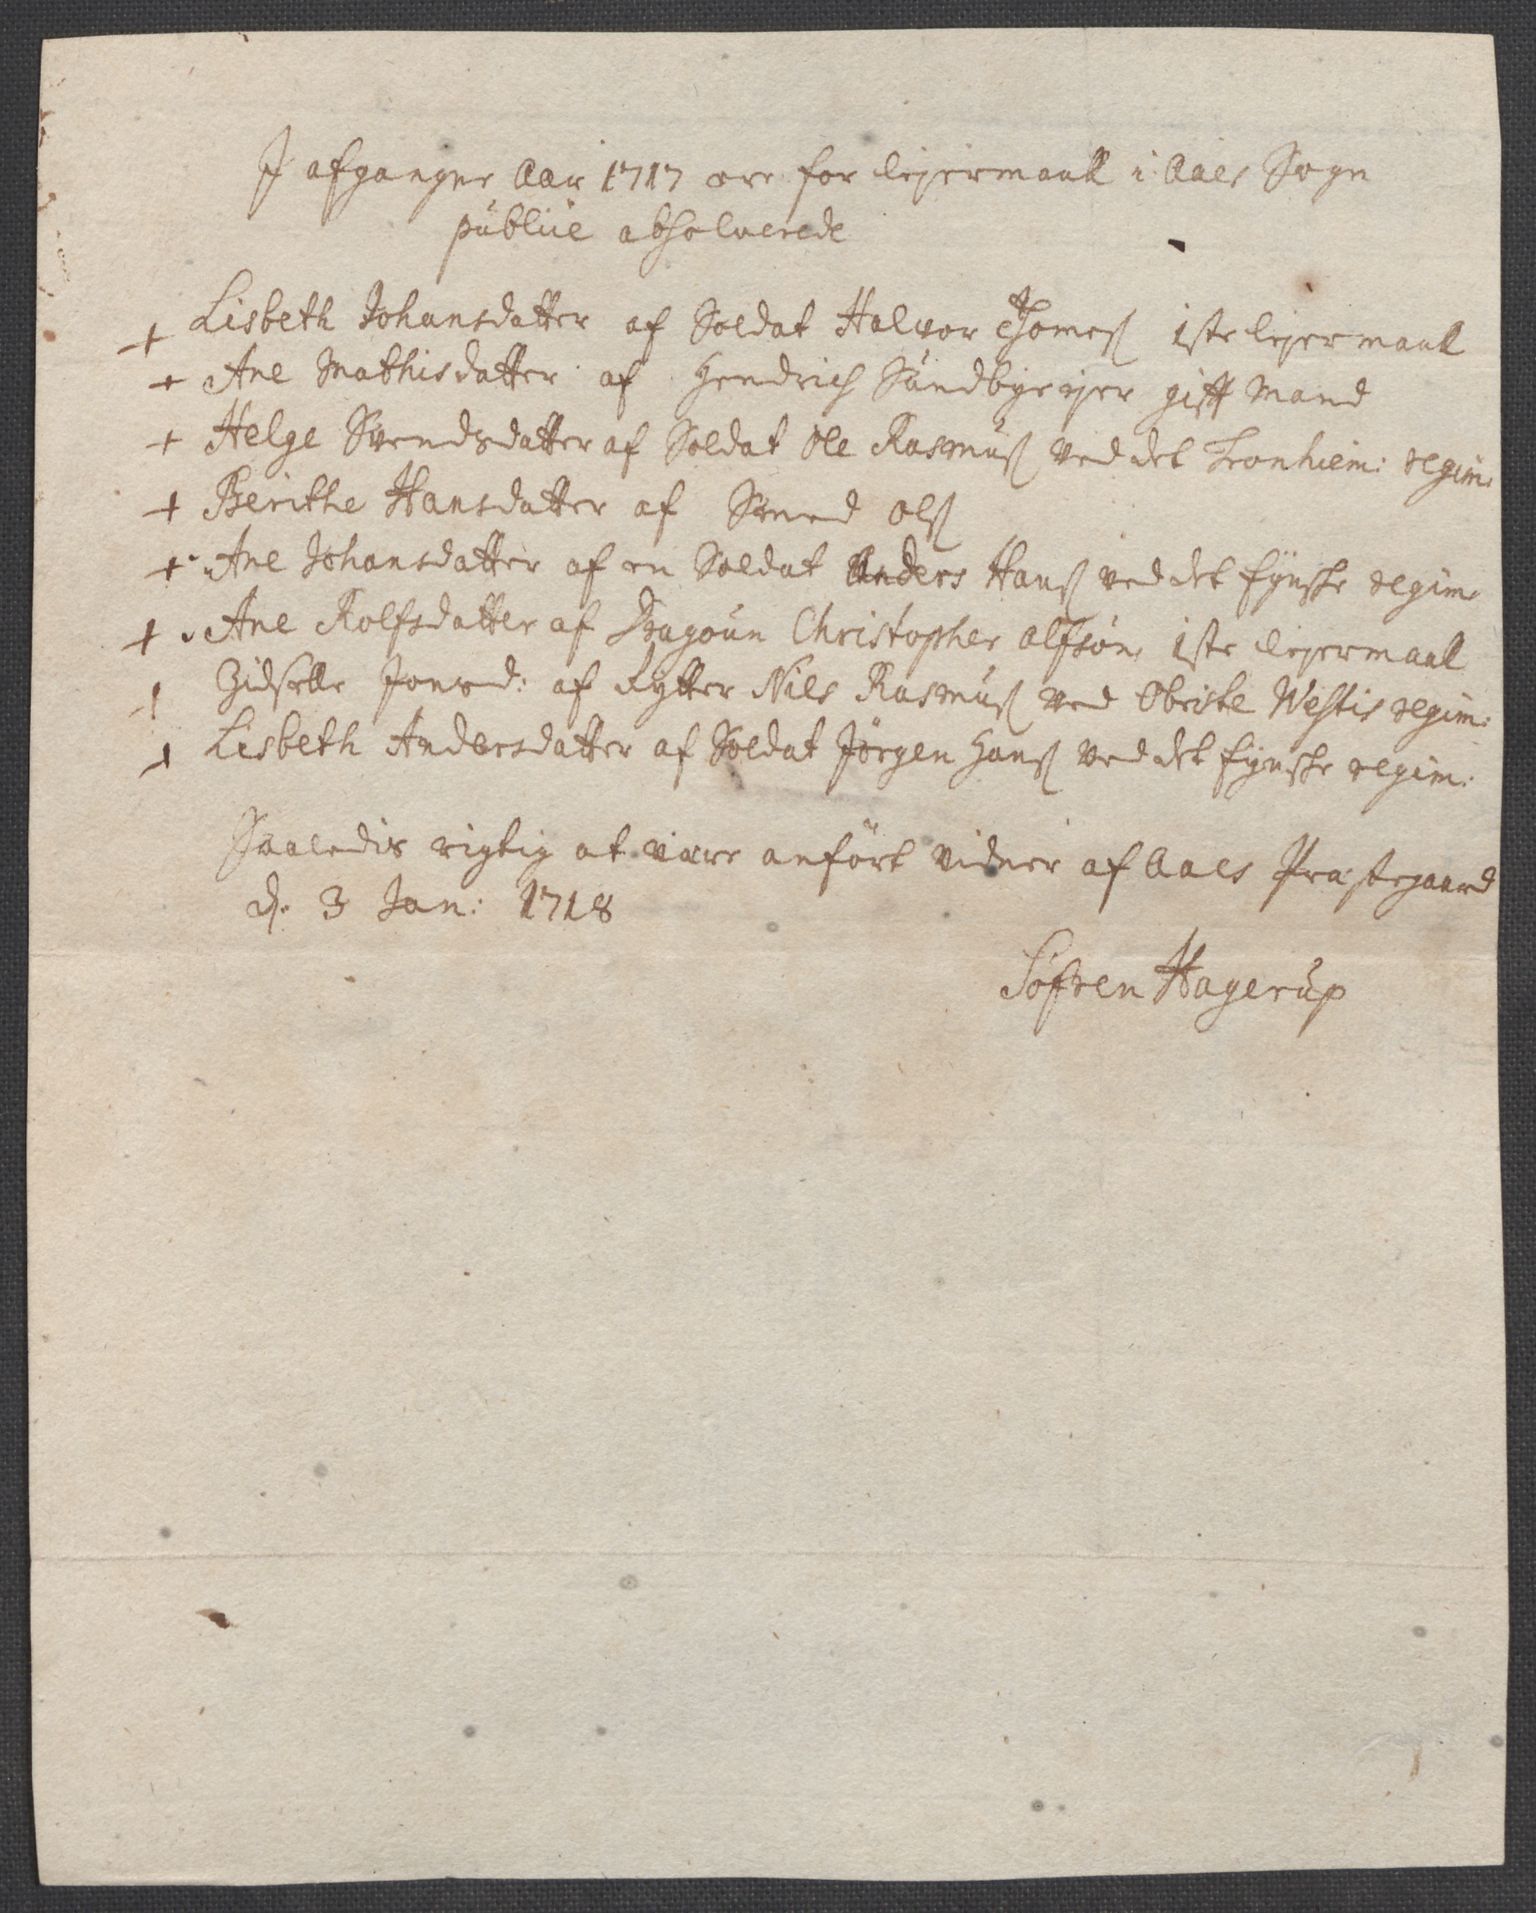 I afgangne Aar 1717 ere for leiermaall i Aaes Sogn
publice absolverede
+ Lisbeth Johansdatter af Soldat Halvor Thomeß 1ste leiermaall
+ Ane Mathisdatter af Hendrich gift Mand
+ Helge Svendsdatter af Soldat Ole Rasmuß ved det Tronhiem: regim:
+ Berithe Hansdatter af Svend Olß
+ Ane Johansdatter af en Soldat Anders Hanß ved det fynske regim:
+ Ane Rolfsdatter af Dragoun Christopher Olfsøn 1ste leiermaall
+ Zidselle Jonsd: af Rytter Niels Rasmuß ved Obriste Westis regim:
+ Lisbeth Andersdatter af Soldat Jørgen Hanß ved det fynske regim:
Saaledis rigtig at være anført vidner af Aaes Præstegaard
d. 3 Jan: 1718
Søfren Hagerup